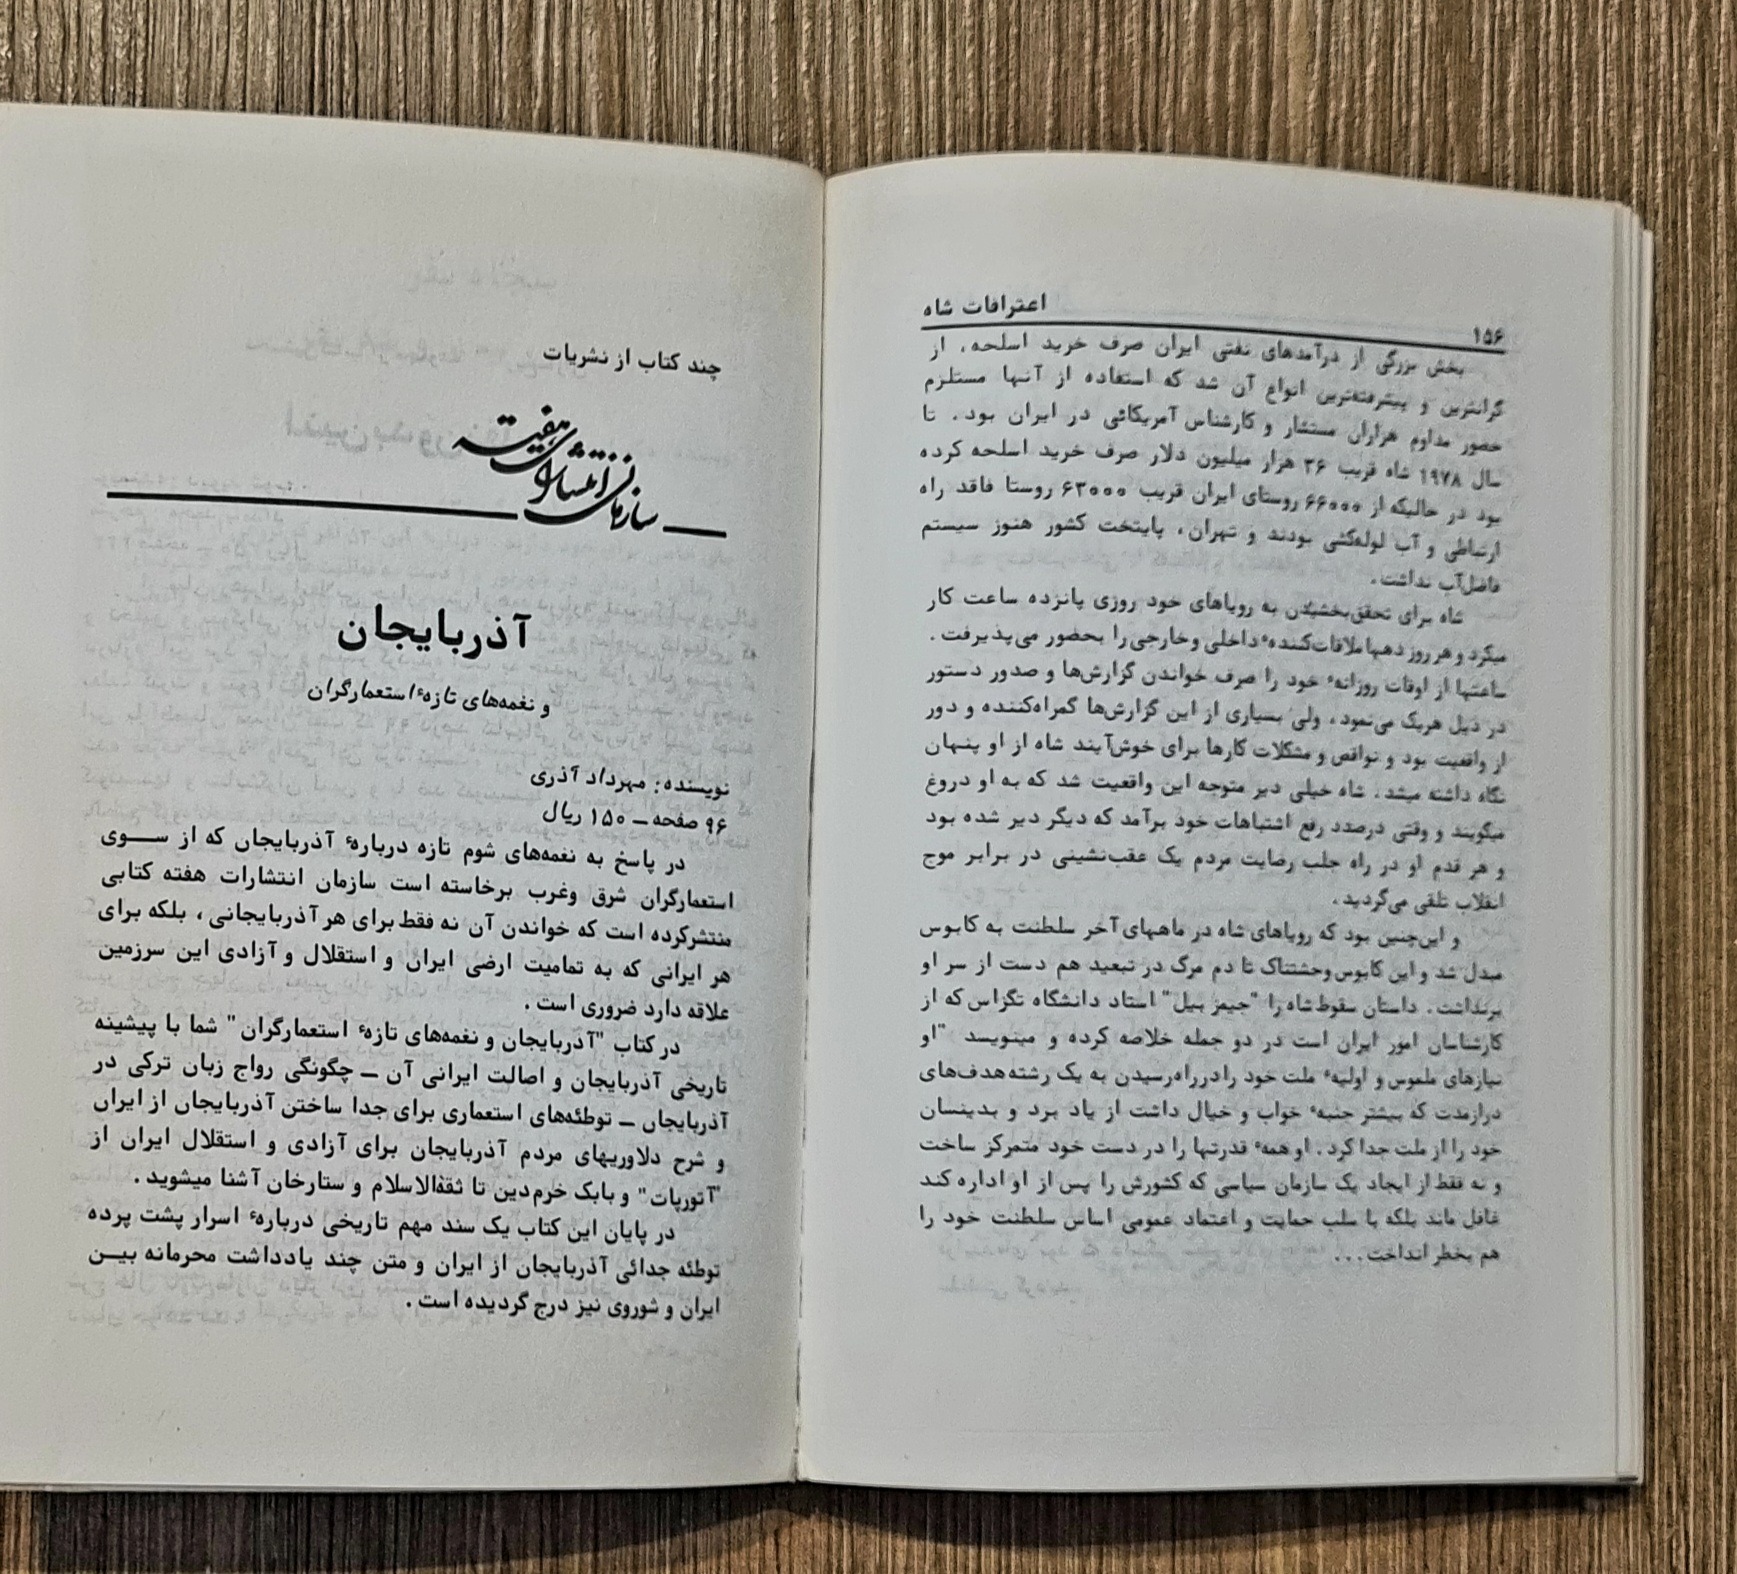 اعترافات شاه
۱۵۶
بخش بزرگی از درآمدهای نفتی ایران صرف خرید اسلحه، از
گرانترین و پیشرفته‌ترین انواع آن شد که استفاده از آنها مستلزم
حضور مداوم هزاران مستشار و کارشناس آمریکائی در ایران بود. تا
سال ۱۹۷۸ شاه قریب ۳۶ هزار میلیون دلار صرف خرید اسلحه کرده
بود در حالیکه از ۶۶۰۰۰ روستای ایران قریب ۶۳۰۰۰ روستا فاقد راه
ارتباطی و آب لوله‌کشی بودند و تهران، پایتخت کشور هنوز سیستم
فاضل‌آب نداشت.
شاه برای تحقق‌بخشیدن به رویاهای خود روزی پانزده ساعت کار
میکرد و هر روز دهها ملاقات‌کننده‌ٔ داخلی و خارجی را بحضور می‌پذیرفت.
ساعتها از اوقات روزانه‌ٔ خود را صرف خواندن گزارش‌ها و صدور دستور
در ذیل هریک می‌نمود، ولی بسیاری از این گزارش‌ها گمراه‌کننده و دور
از واقعیت بود و نواقص و مشکلات کارها برای خوش‌آیند شاه از او پنهان
نگاه داشته میشد. شاه خیلی دیر متوجه این واقعیت شد که به او دروغ
میگویند و وقتی درصدد رفع اشتباهات خود برآمد که دیگر دیر شده بود
و هر قدم او در راه جلب رضایت مردم یک عقب‌نشینی در برابر موج
انقلاب تلقی می‌گردید.
و این‌چنین بود که رویاهای شاه در ماههای آخر سلطنت به کابوس
مبدل شد و این کابوس وحشتناک تا دم مرگ در تبعید هم دست از سر او
برنداشت. داستان سقوط شاه را "جیمز بیل" استاد دانشگاه تگزاس که از
کارشناسان امور ایران است در دو جمله خلاصه کرده و مینویسد "او
نیازهای ملموس و اولیه‌ٔ ملت خود را در راه رسیدن به یک رشته هدف‌های
درازمدت که بیشتر جنبه‌ٔ خواب و خیال داشت از یاد برد و بدینسان
خود را از ملت جدا کرد. او همه‌ٔ قدرتها را در دست خود متمرکز ساخت
و نه فقط از ایجاد یک سازمان سیاسی که کشورش را پس از او اداره کند
غافل ماند بلکه با سلب حمایت و اعتماد عمومی اساس سلطنت خود را
هم بخطر انداخت...
چند کتاب از نشریات
سازمان انتشارات هفته
آذربایجان
و نغمه‌های تازه‌ٔ استعمارگران
نویسنده: مهرداد آذری
۹۶ صفحه ــ ۱۵۰ ریال
در پاسخ به نغمه‌های شوم تازه درباره‌ٔ آذربایجان که از سوی
استعمارگران شرق وغرب برخاسته است سازمان انتشارات هفته کتابی
منتشرکرده است که خواندن آن نه فقط برای هر آذربایجانی، بلکه برای
هر ایرانی که به تمامیت ارضی ایران و استقلال و آزادی این سرزمین
علاقه دارد ضروری است.
در کتاب "آذربایجان و نغمه‌های تازه‌ٔ استعمارگران" شما با پیشینه
تاریخی آذربایجان و اصالت ایرانی آن ــ چگونگی رواج زبان ترکی در
آذربایجان ــ توطئه‌های استعماری برای جدا ساختن آذربایجان از ایران
و شرح دلاوریهای مردم آذربایجان برای آزادی و استقلال ایران از
"آتورپات" و بابک خرم‌دین تا ثقةالاسلام و ستارخان آشنا میشوید.
در پایان این کتاب یک سند مهم تاریخی درباره‌ٔ اسرار پشت پرده
توطئه جدائی آذربایجان از ایران و متن چند یادداشت محرمانه بین
ایران و شوروی نیز درج گردیده است.